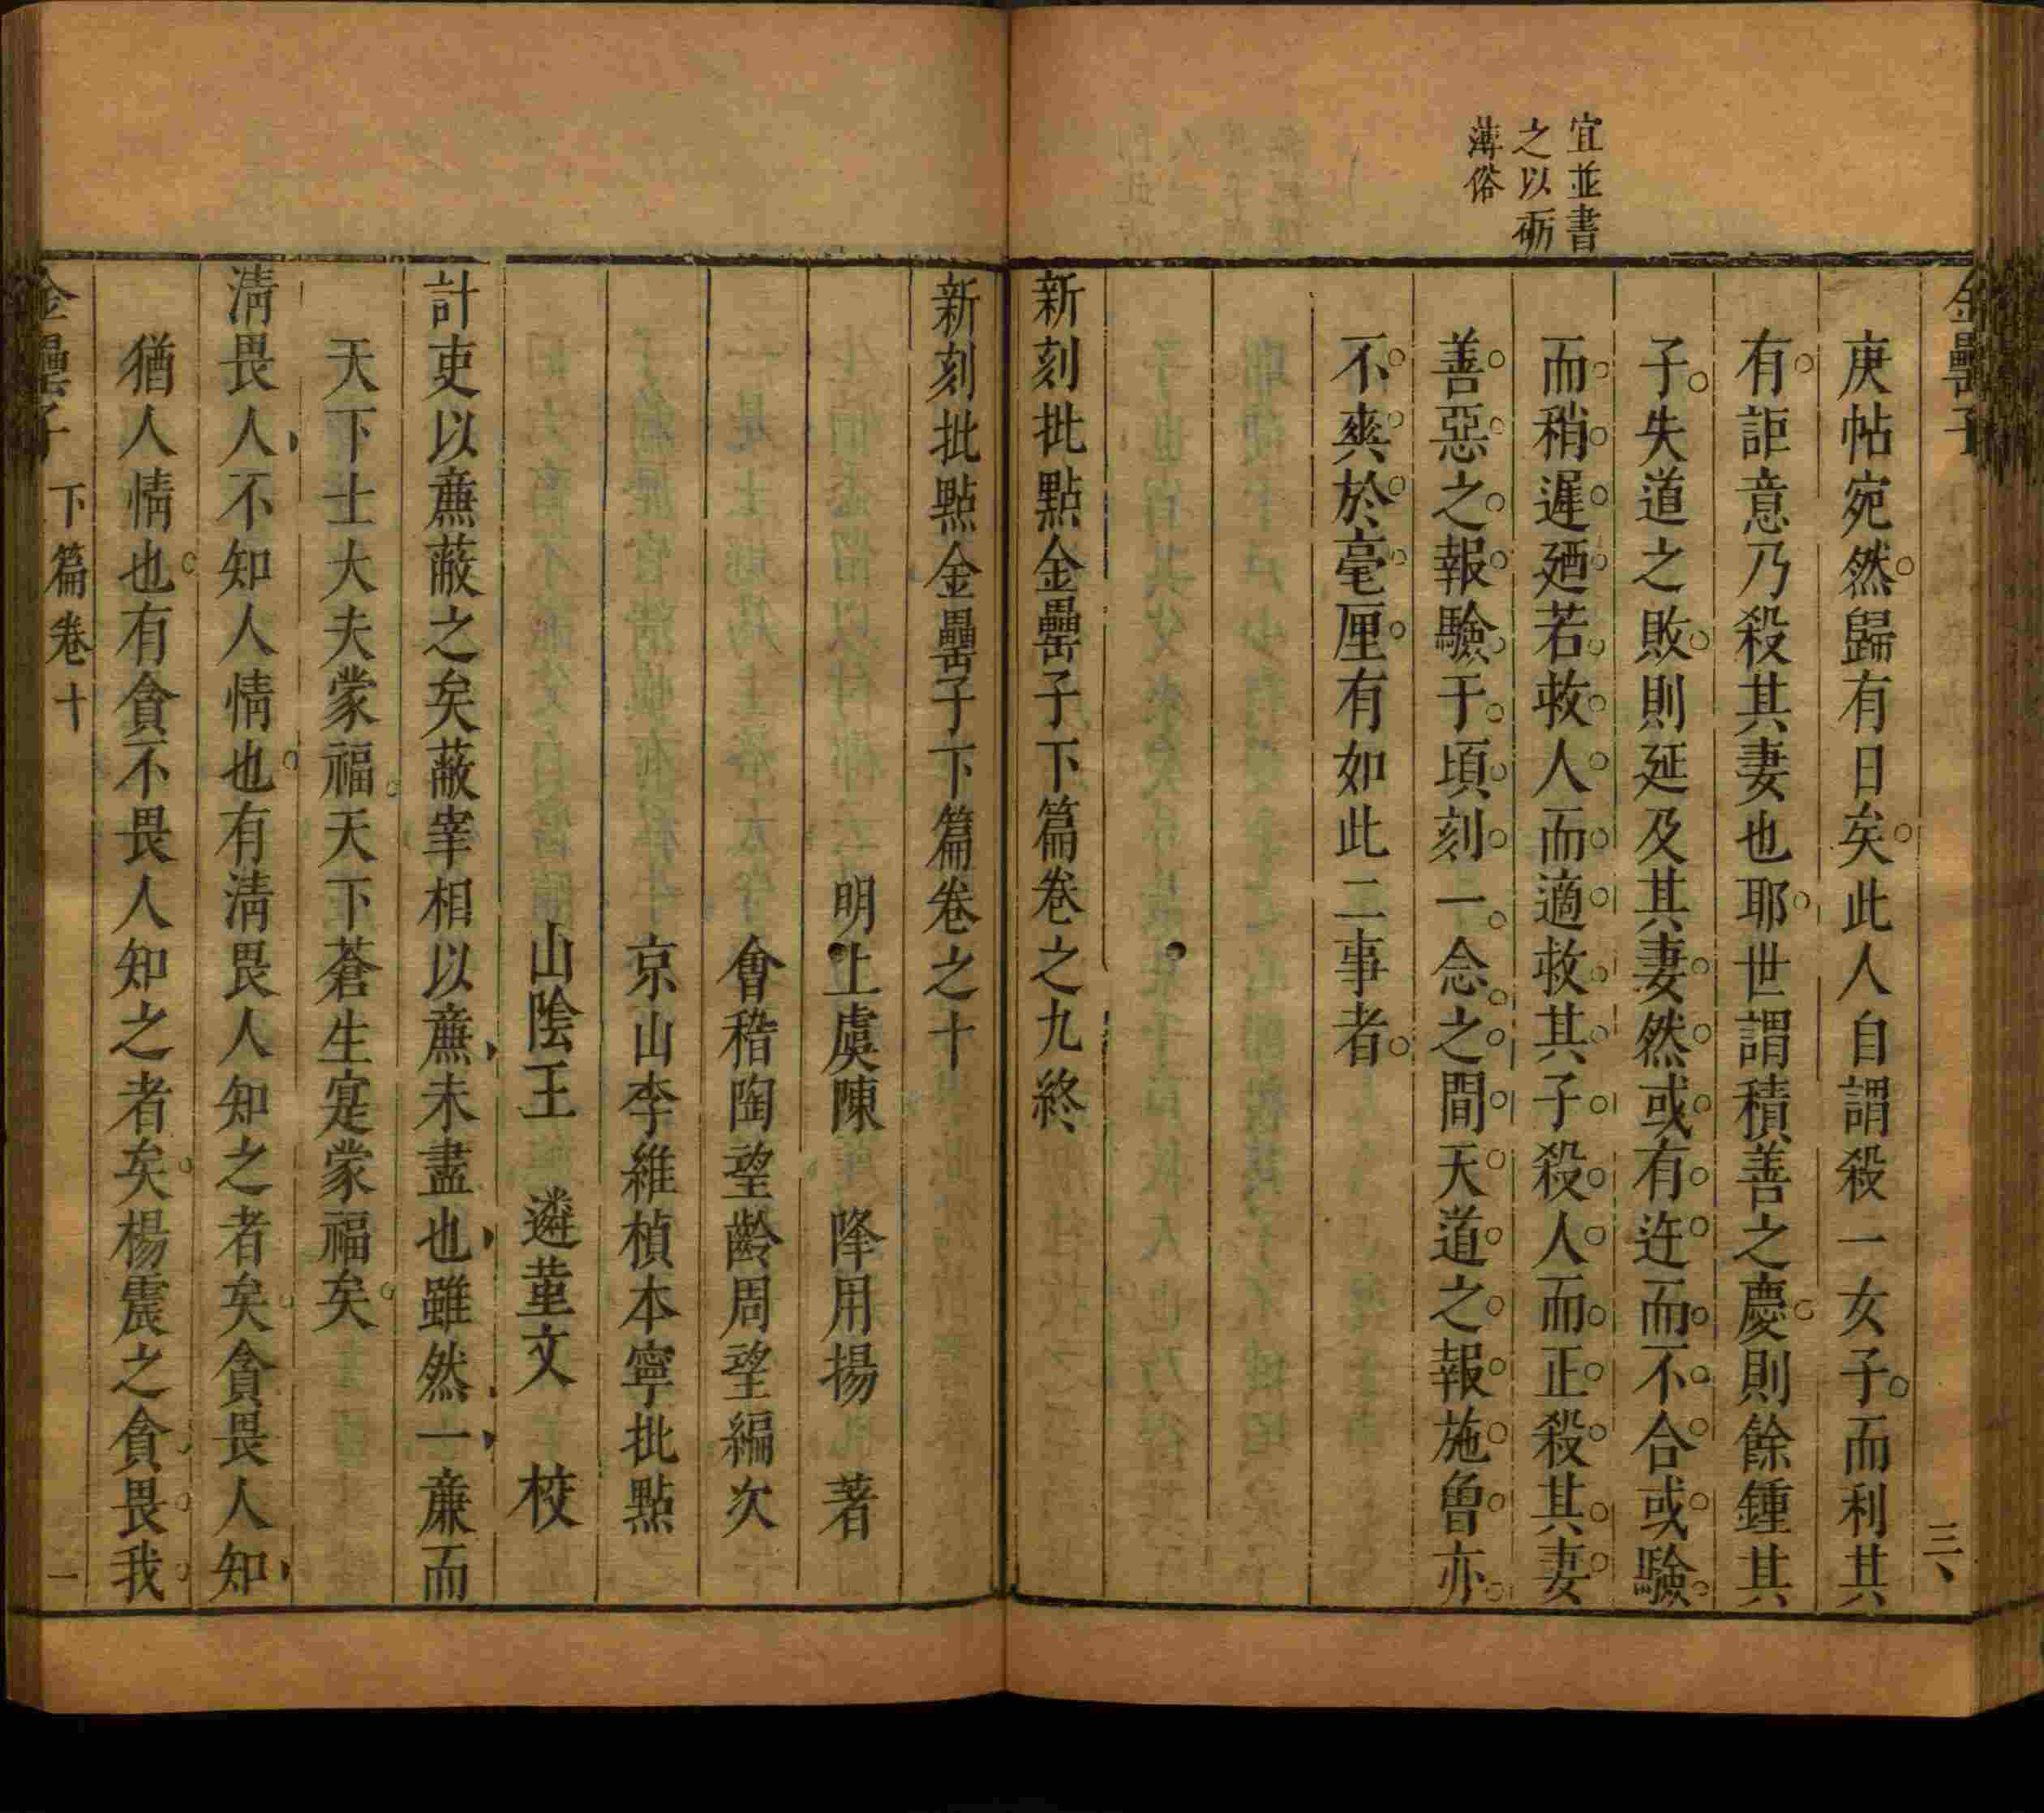 宜並書
之以礪
薄俗
金罍子
三
庚帖宛然歸有日矣此人自謂殺一女子而利其
有詎意乃殺其妻也耶世謂積善之慶則餘鍾其
子失道之敗則延及其妻然或有迕而不合或驗
而稍遲廼若救人而適救其子殺人而正殺其妻
善惡之報驗于頃刻一念之間天道之報施曾亦
不爽於毫厘有如此二事者
新刻批點金罍子下篇卷之九終
新刻批點金罍子下篇卷之十
明上虞陳 降用揚 著
會稽陶望齡周望編次
京山李維楨本寧批點
山陰王 遴菫文 校
計吏以廉蔽之矣蔽宰相以廉未盡也雖然一廉而
天下士大夫蒙福天下蒼生寔蒙福矣
清畏人不知人情也有清畏人知之者矣貪畏人知
猶人情也有貪不畏人知之者矣楊震之貪畏我
金罍子 下篇卷十 一